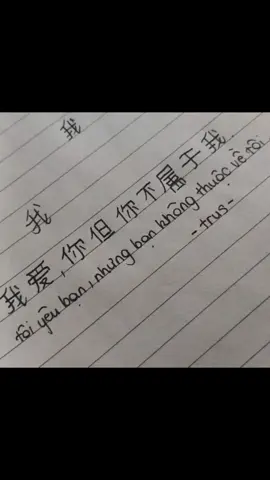 我
我
我爱,你但你不属于我.
tôi yêu bạn, nhưng bạn không thuộc về tôi
- trus -